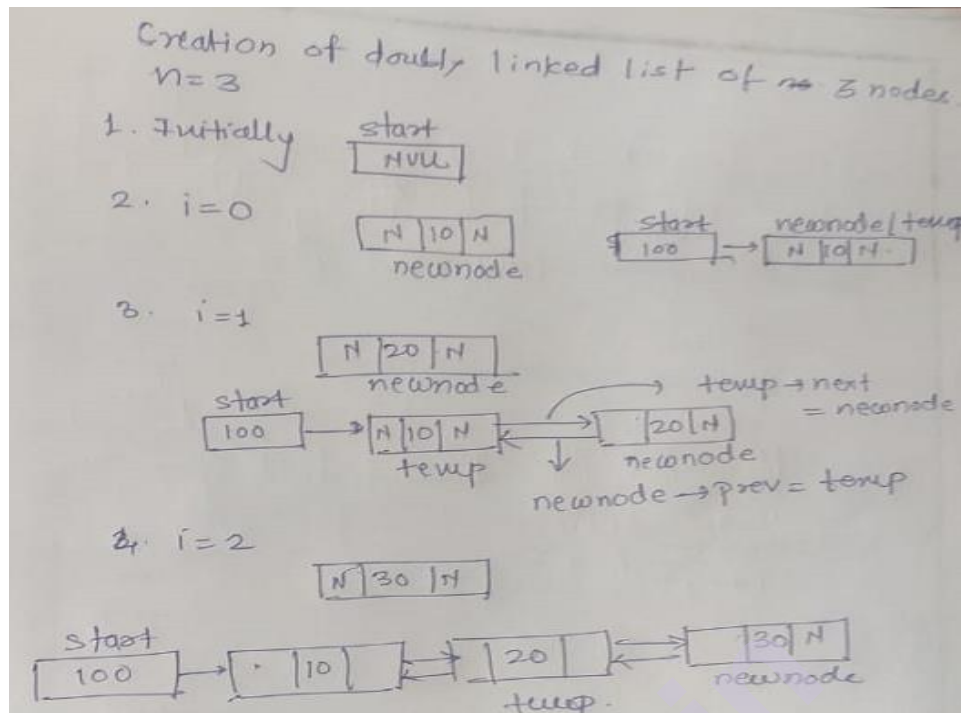 Creation of doubly linked list of 3 nodes.
n=3
1. Initially start
NULL
2. i=0
N 10 N
newnode
start newnode/temp
100 → N 10 N
3. i=1
N 20 N
newnode
start
100 → N 10 N 20 N
temp newnode
temp → next
= newnode
newnode → prev = temp
4. i=2
N 30 N
start
100 → 10 20 30 N
temp. newnode